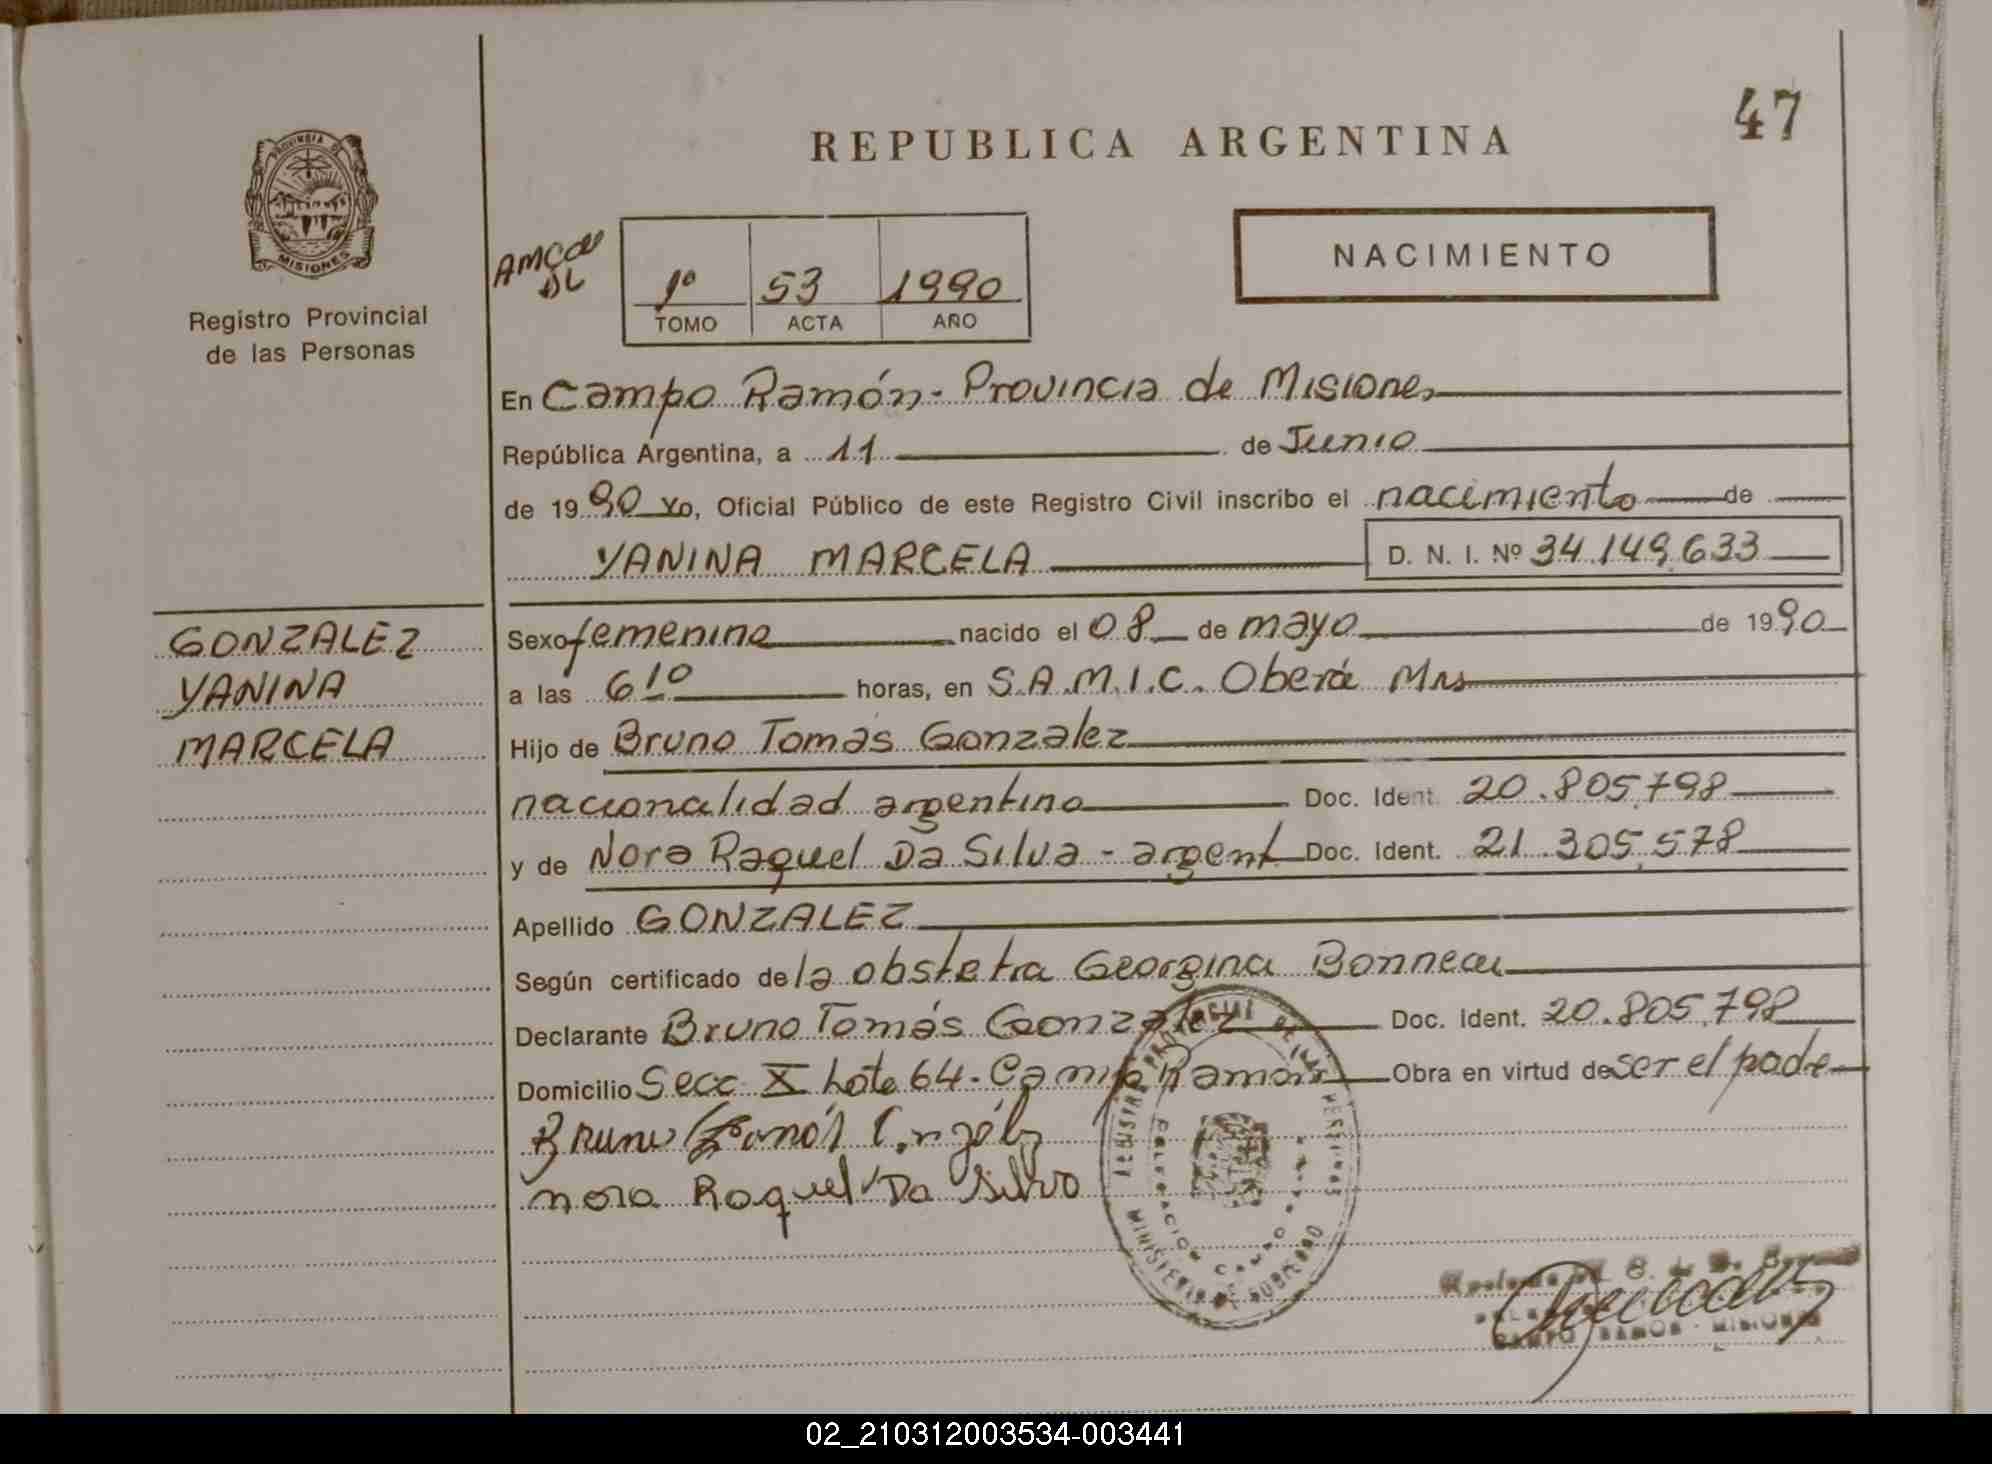 47
REPUBLICA ARGENTINA
PROVINCIA DE
MISIONES
Registro Provincial
de las Personas
1º 53 1990
TOMO ACTA AÑO
NACIMIENTO
En Campo Ramón - Provincia de Misiones
República Argentina, a 11 de Junio
de 1990 Yo, Oficial Público de este Registro Civil inscribo el nacimiento de
YANINA MARCELA D. N. I. Nº 34.149.633
GONZALEZ
YANINA
MARCELA
Sexo femenino nacido el 08 de mayo de 1990
a las 6 10 horas, en S.A.M.I.C. Oberá Mns
Hijo de Bruno Tomás Gonzalez
nacionalidad argentina Doc. Ident. 20.805.798
y de Nora Raquel Da Silva - argent Doc. Ident. 21.305.578
Apellido GONZALEZ
Según certificado de la obstetra Georgina Bonneau
Declarante Bruno Tomás Gonzalez Doc. Ident. 20.805.798
Domicilio Secc X Lote 64 - Campo Ramón Obra en virtud de ser el padre
Bruno
nora Raquel Da Silva
MINISTERIO DE GOBIERNO
DELEGACION CAMPO
CAMPO RAMON - MISIONES
02_210312003534-003441